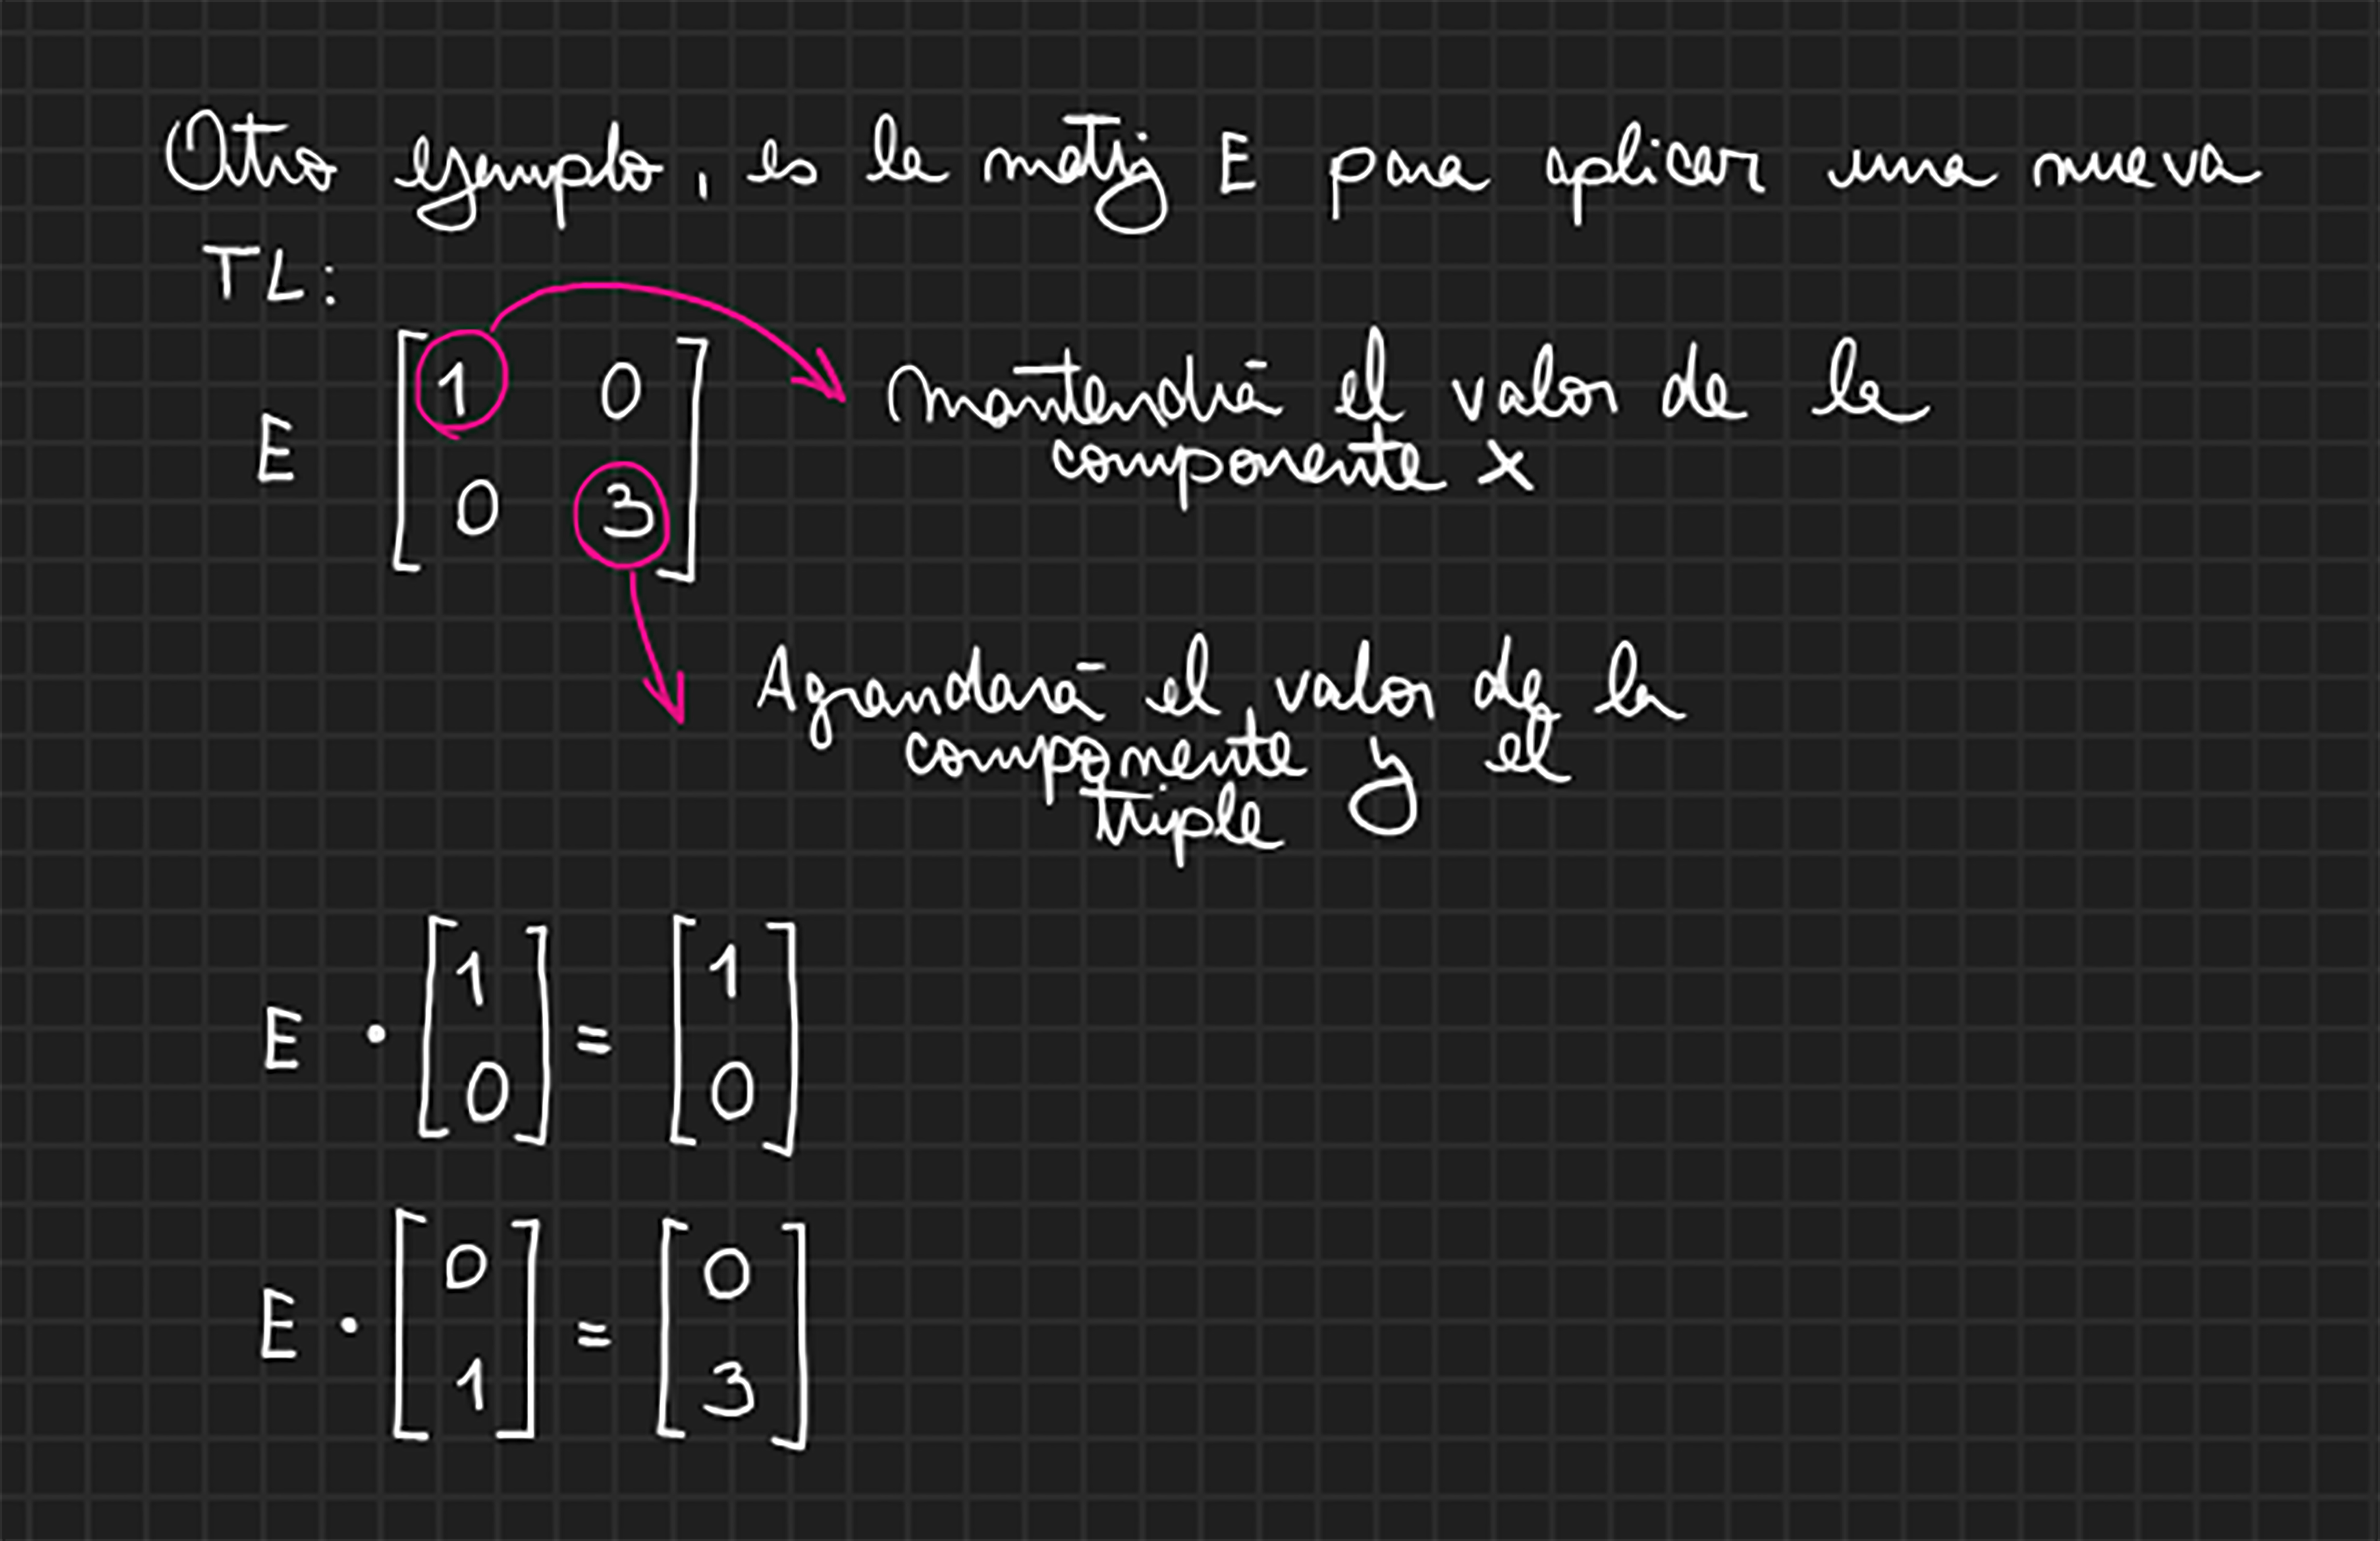 Otro ejemplo, es la matriz E para aplicar una nueva
TL:
E [1 0
0 3]
Mantendrá el valor de la
componente x
Agrandará el valor de la
componente y el
triple
E · [1 0] = [1 0]
E · [0 1] = [0 3]